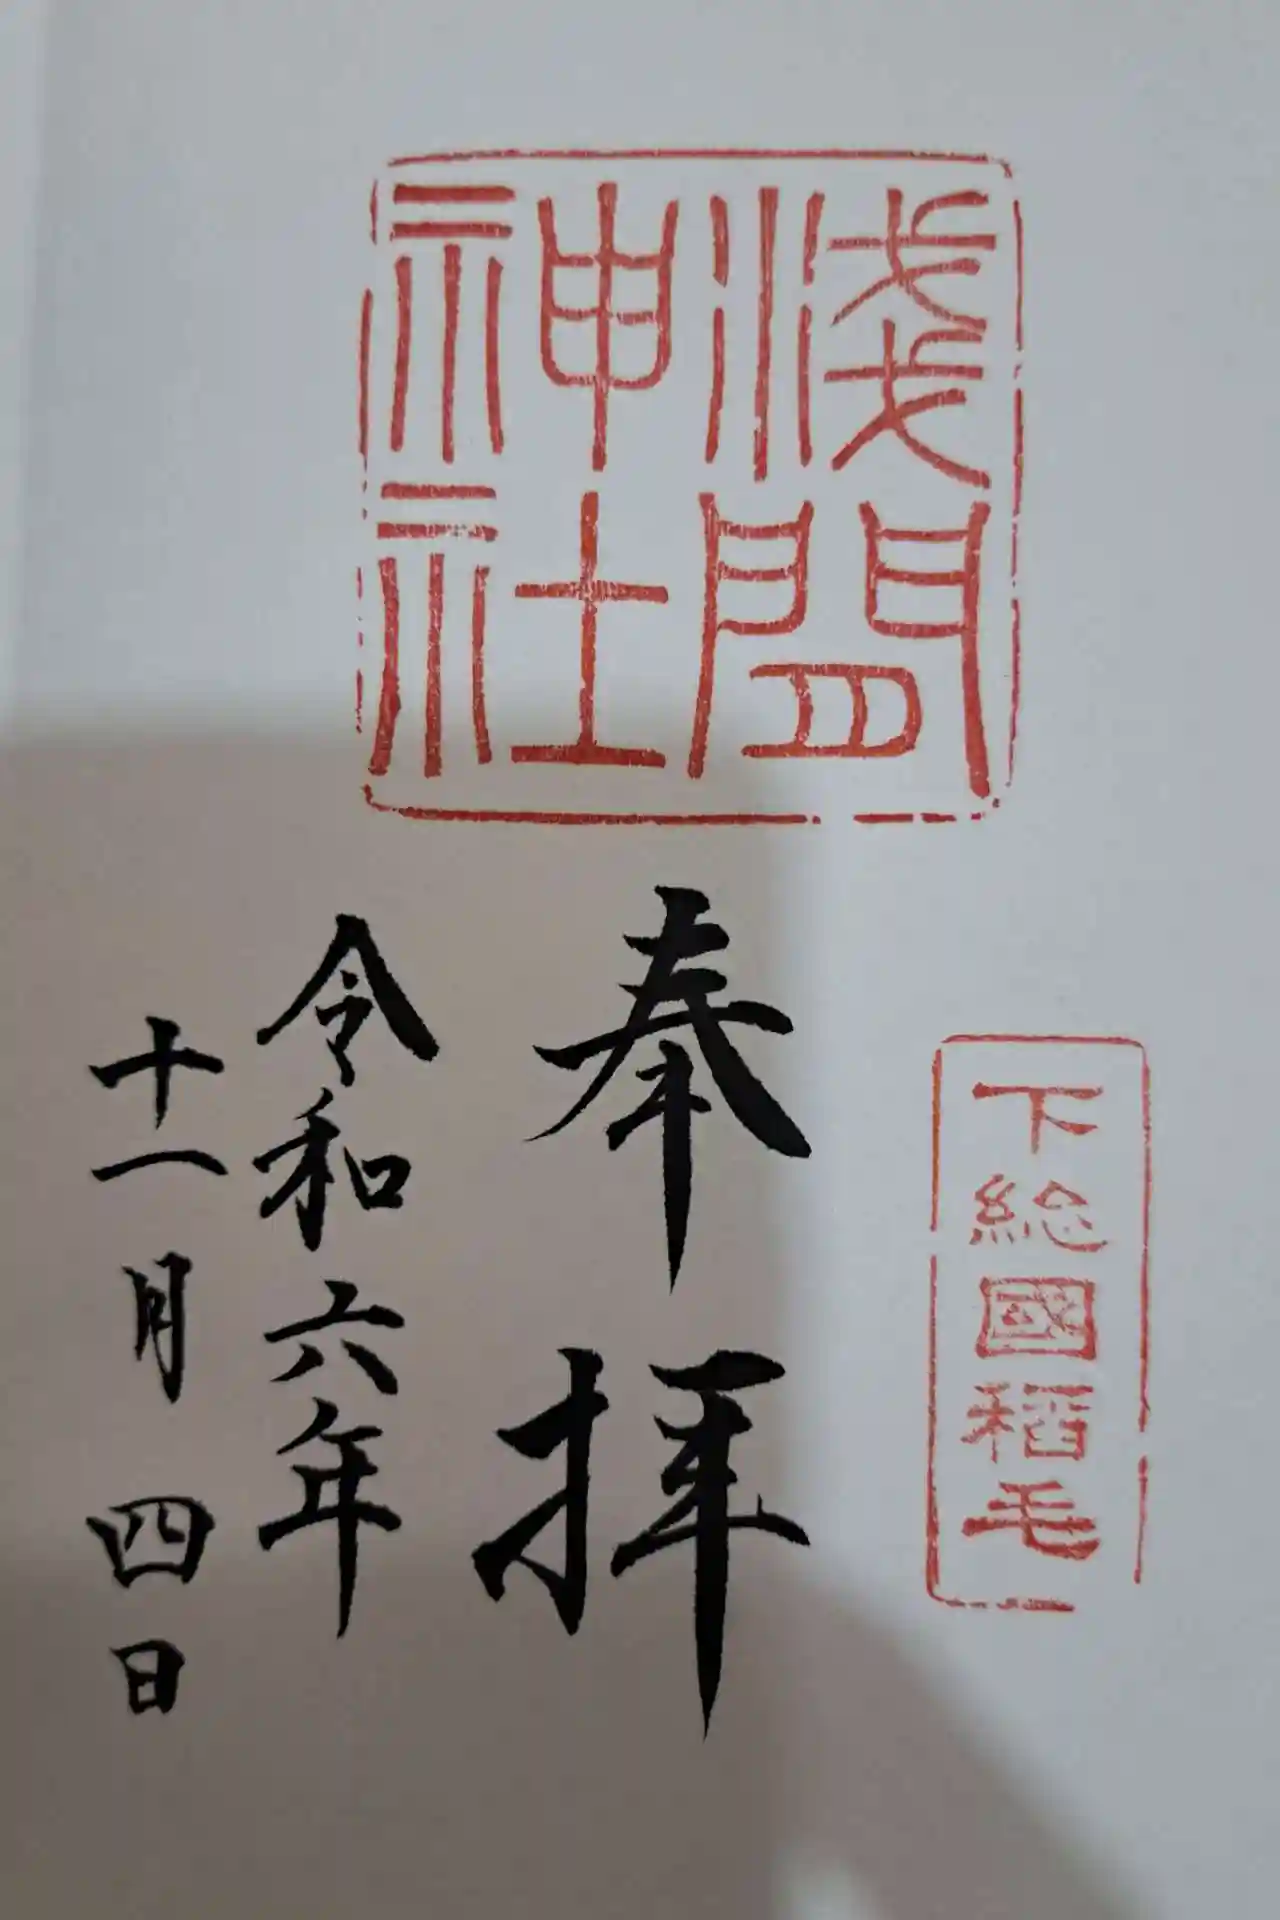 淺間
神社
下総國稻毛
奉拝
令和六年
十一月四日